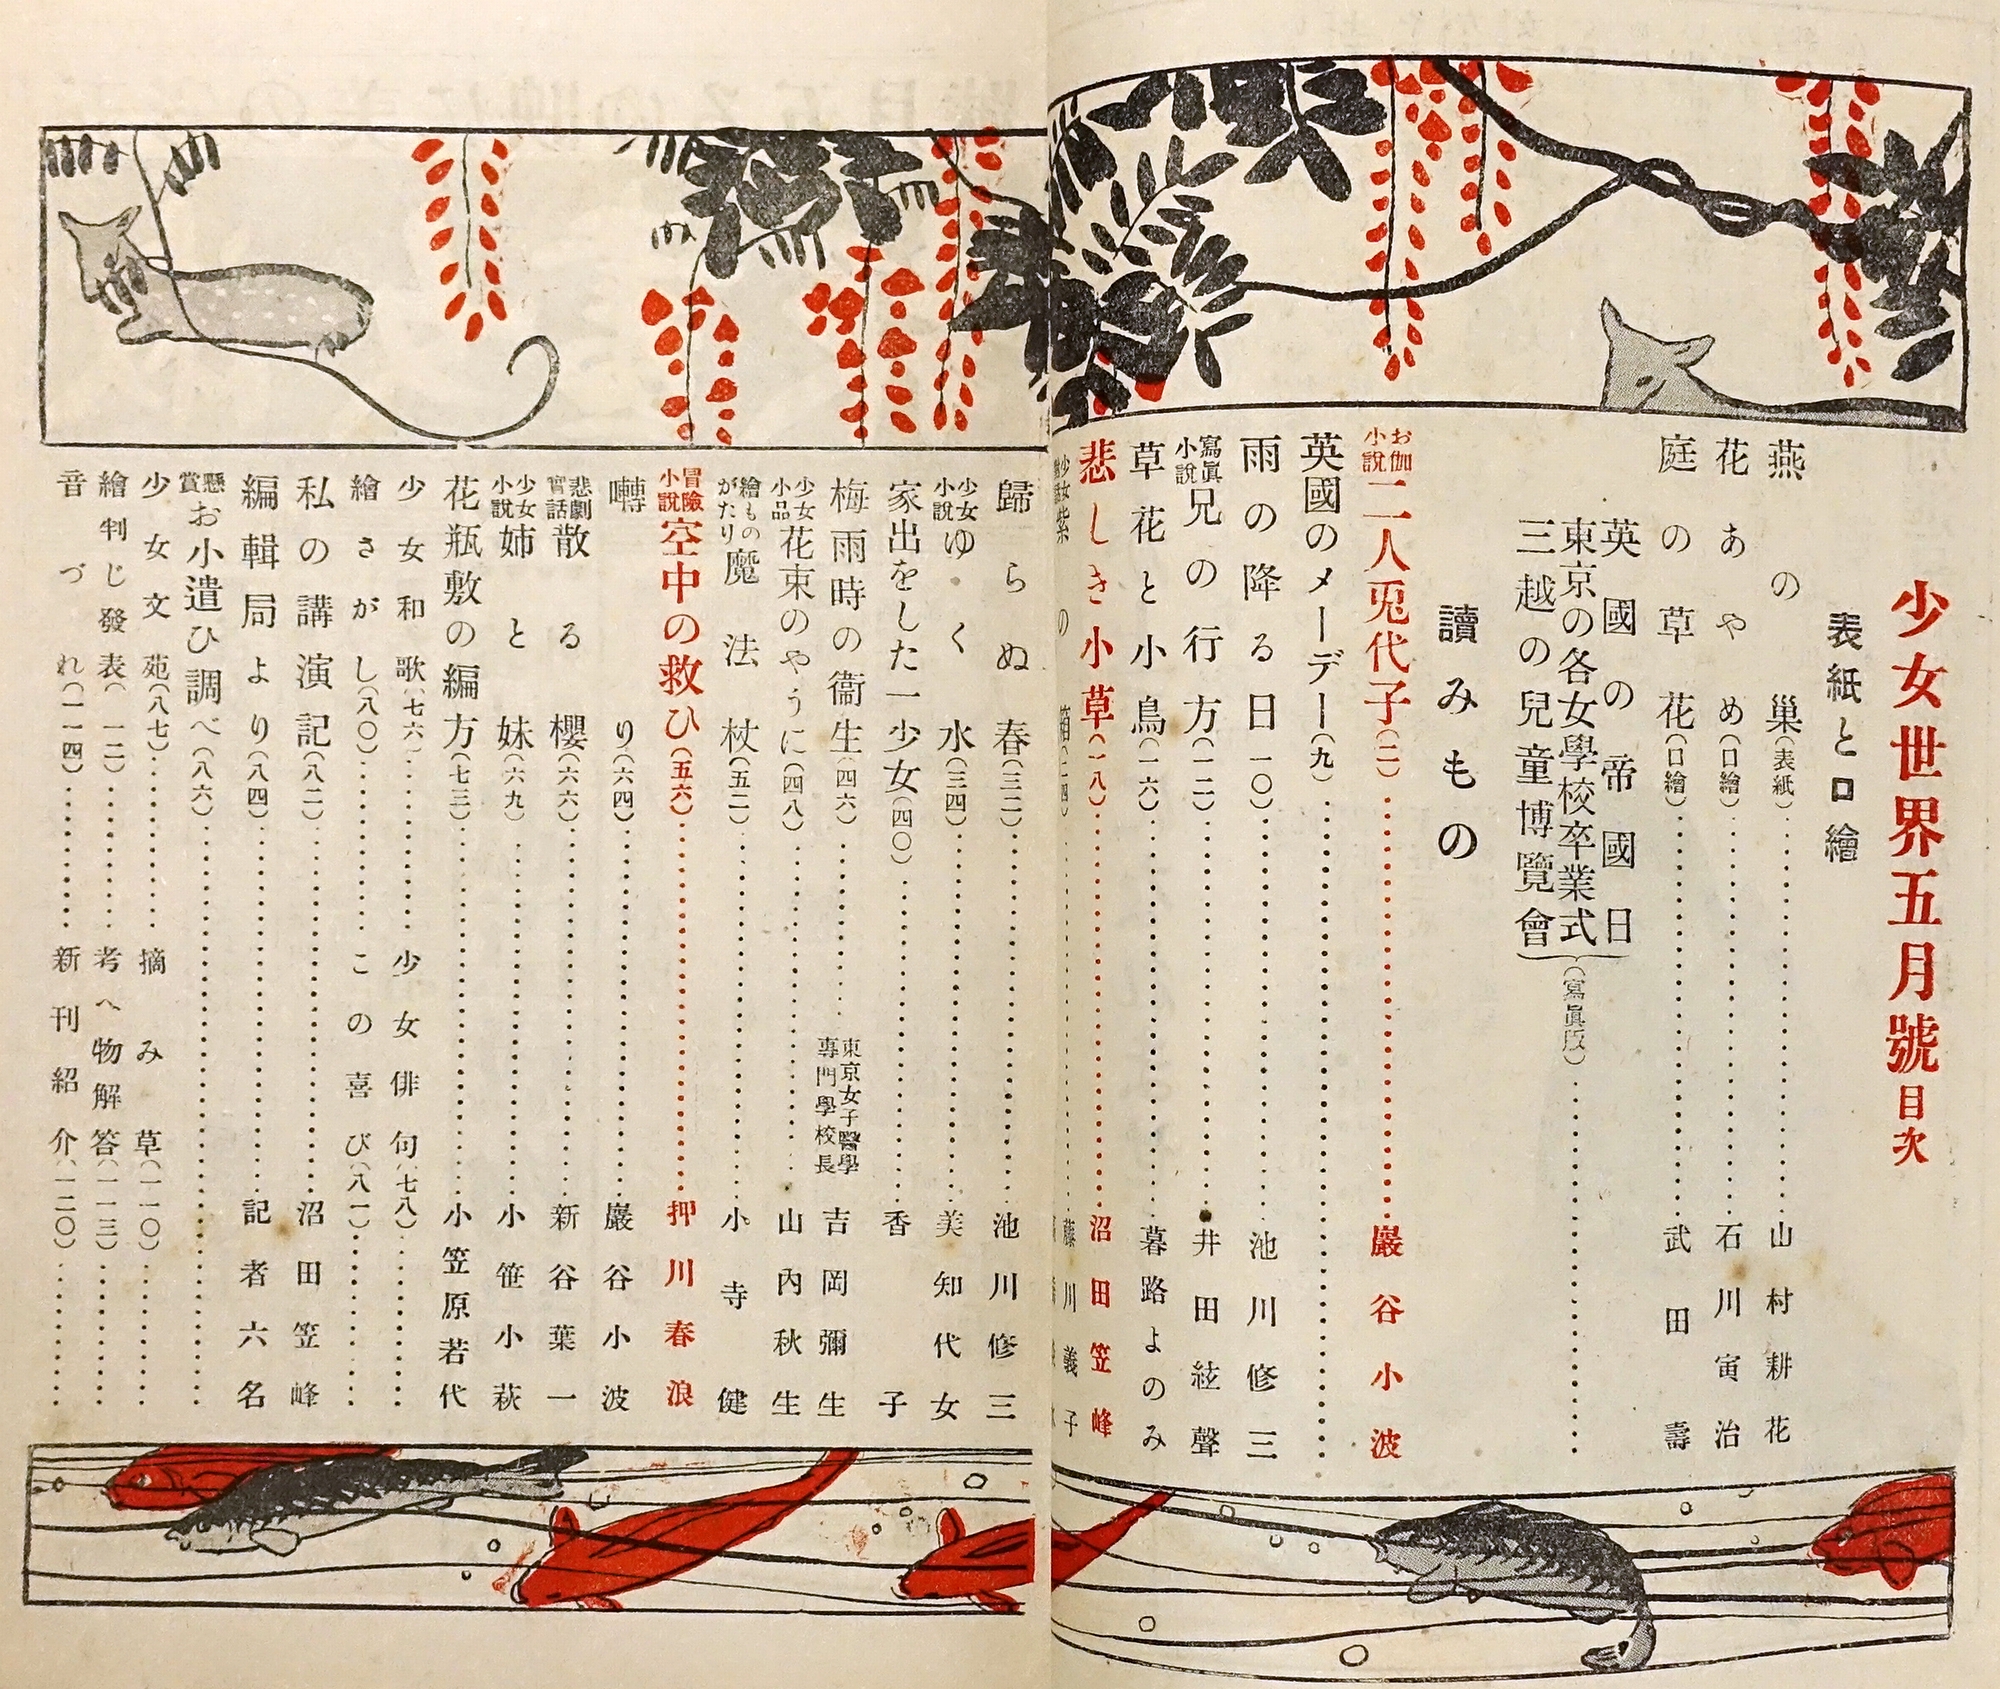 少女世界五月號目次
表紙と口繪
燕の巣(表紙)山村耕花
花あやめ(口繪)石川寅治
庭の草花(口繪)武田壽
英國の帝國日
東京の各女學校卒業式
三越の兒童博覽會
(寫眞版)
讀みもの
英國のメーデー(九)
お伽小說 二人兎代子(二)巖谷小波
雨の降る日(一〇)池川修三
寫眞小說 兄の行方(一二)井田絃聲
草花と小鳥(一六)暮路よのみ
悲しき小草(一八)沼田笠峰
少女 紫の箱(二四)藤川義子
歸らぬ春(三二)池川修三
少女小說 ゆく水(三四)美知代女
家出をした一少女(四〇)香子
梅雨時の衞生(四六)東京女子醫學專門學校長 吉岡彌生
少女小品 花束のやうに(四八)山內秋生
繪ものがたり 魔法杖(五二)小寺健
冒險小說 空中の救ひ(五六)押川春浪
囀り(六四)巖谷小波
悲劇實話 散る櫻(六六)新谷葉一
少女小說 姉と妹(六九)小笹小萩
花瓶敷の編方(七三)小笠原若代
少女和歌(七六)少女俳句(七八)
繪さがし(八〇)この喜び(八一)
私の講演記(八二)沼田笠峰
編輯局より(八四)記者六名
懸賞 お小遣ひ調べ(八六)
少女文苑(八七)摘み草(一一〇)
繪判じ發表(一一二)考へ物解答(一一三)
音づれ(一一四)新刊紹介(一二〇)